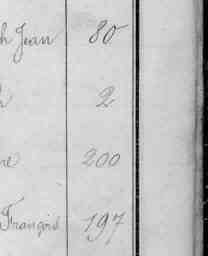 h Jean 80
h 2
re 200
François 197